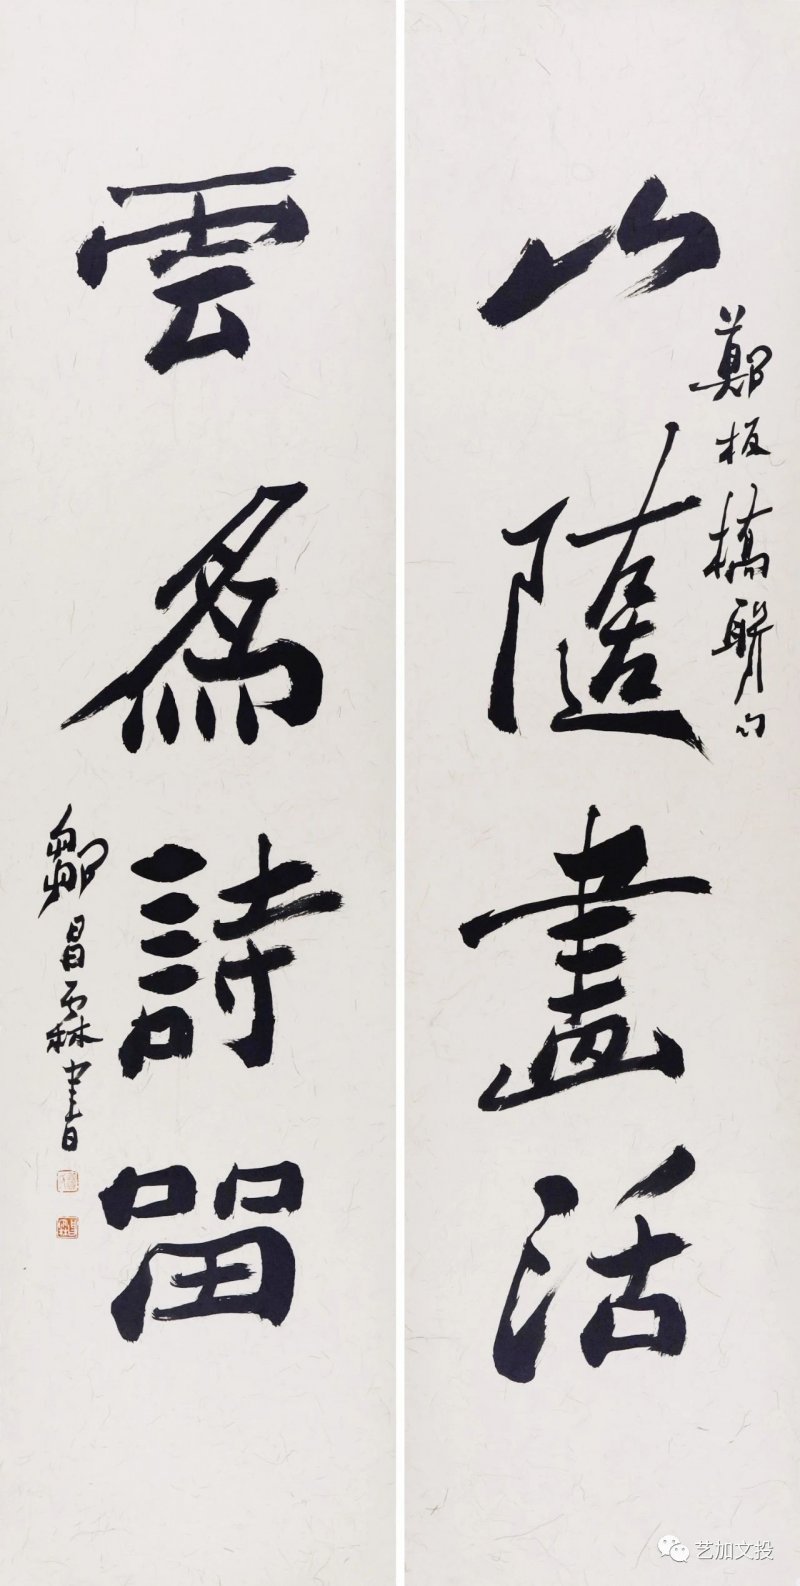 山隨畫活
鄭板橋聯句
雲為詩留
鄒昌霖書
艺加文投